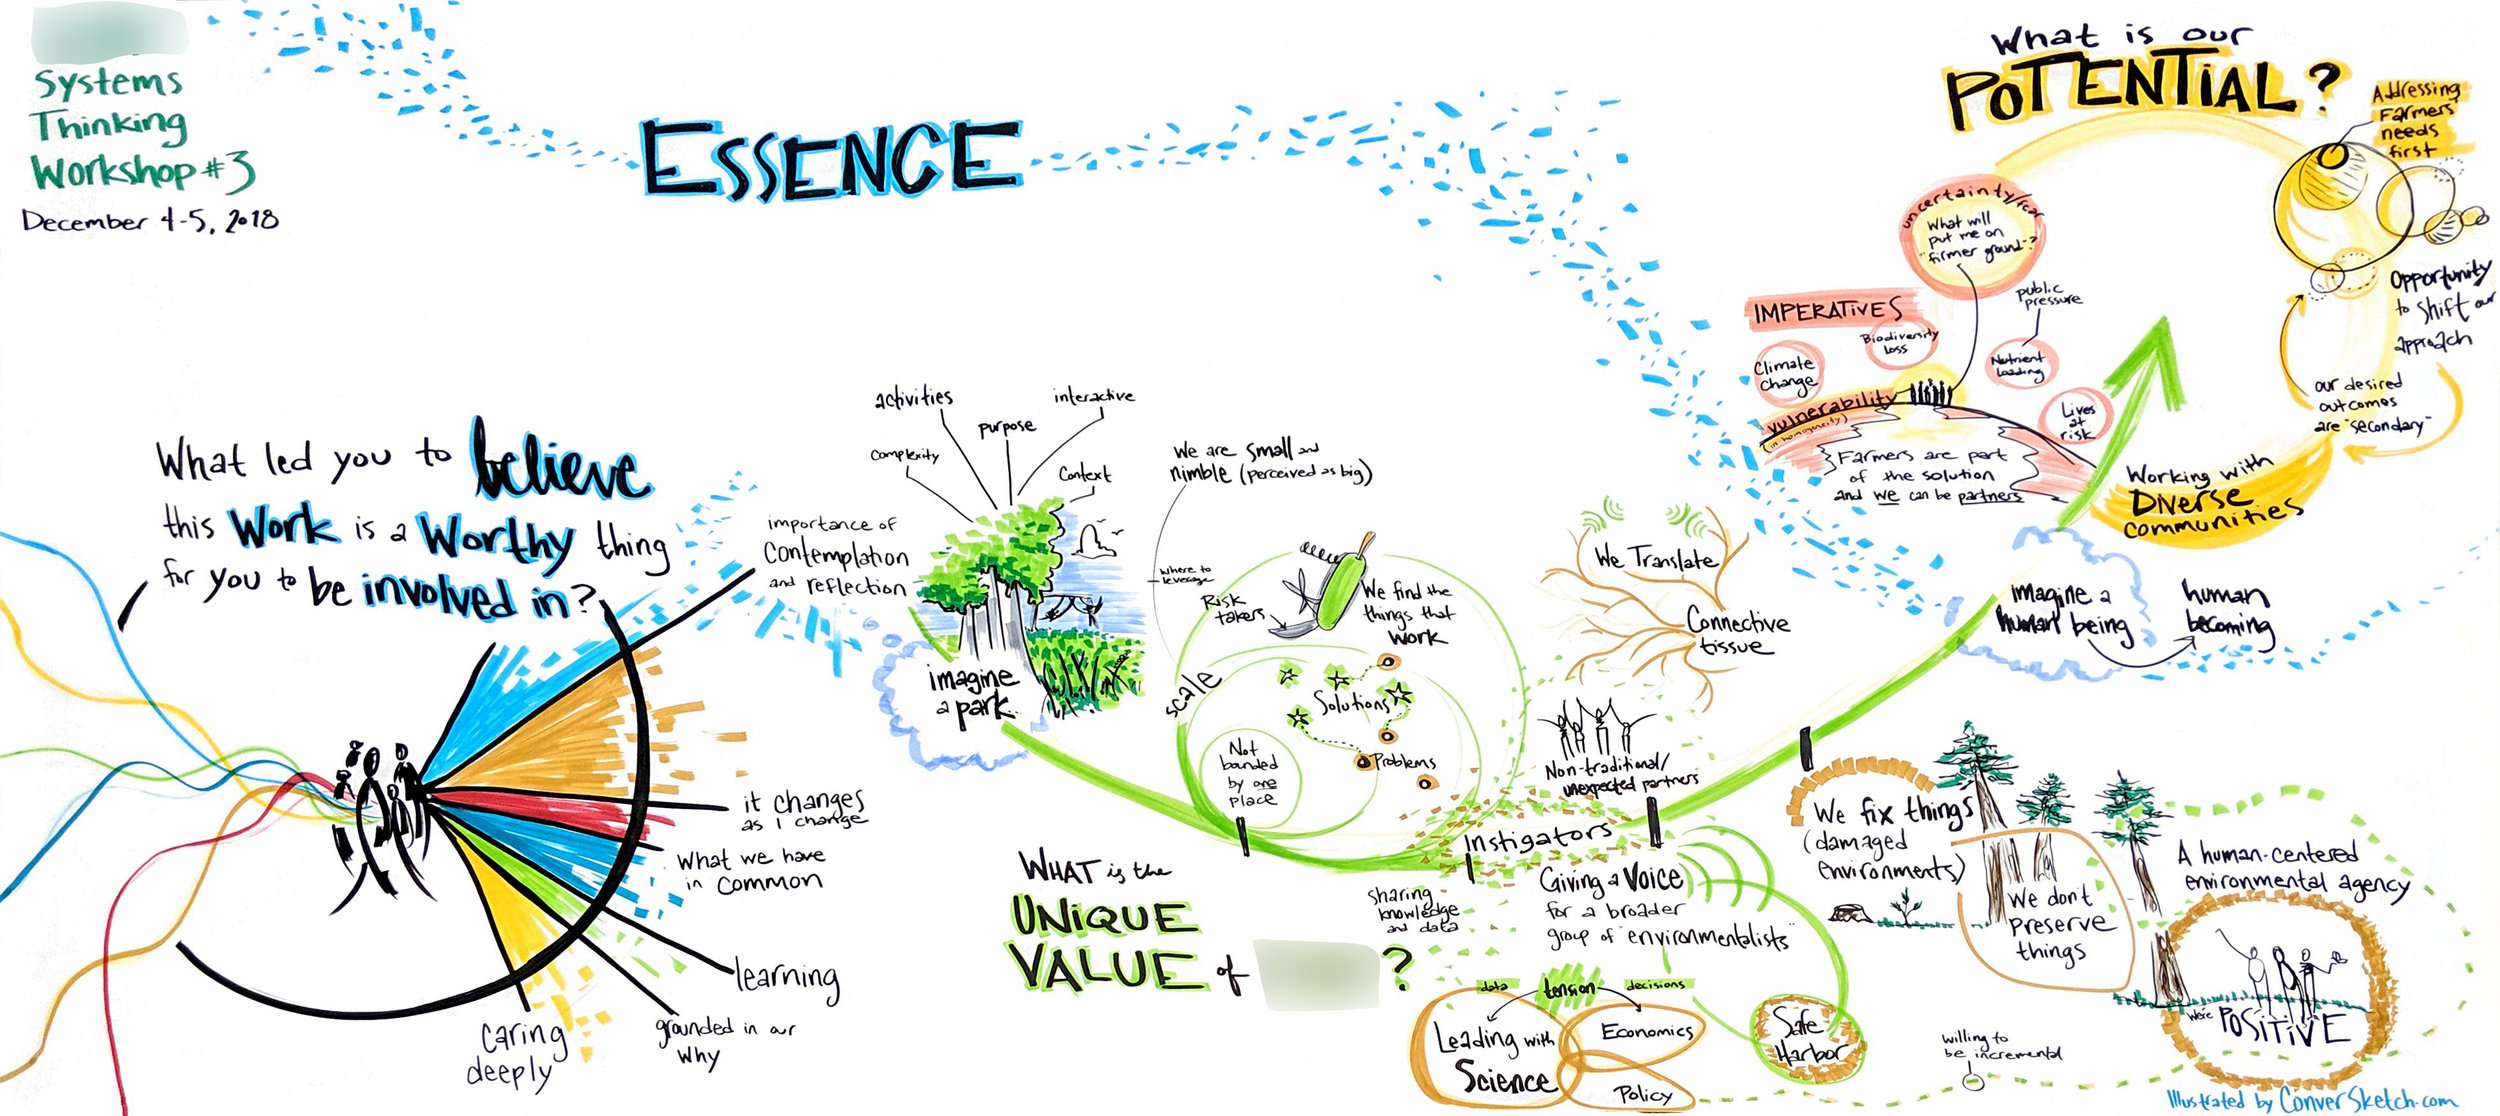 Systems
Thinking
Workshop #3
December 4-5, 2018
ESSENCE
What led you to believe
this Work is a Worthy thing
for you to be involved in?
importance of
contemplation
and reflection
it changes
as I change
What we have
in common
learning
grounded in our
why
caring
deeply
activities
interactive
purpose
complexity
Context
imagine
a park
We are small and
nimble (perceived as big)
where to
leverage
Risk
takers
We find the
things that
work
scale
Solutions
Problems
Not
bounded
by one
place
WHAT is the
UNIQUE
VALUE of
?
We Translate
Connective
tissue
Non-traditional/
unexpected partners
Instigators
sharing
knowledge
and data
Giving a VOICE
for a broader
group of "environmentalists"
data
tension
decisions
Leading with
Science
Economics
Policy
Safe
Harbor
We fix things
(damaged
environments)
We don't
preserve
things
A human-centered
environmental agency
we're POSITIVE
willing to
be incremental
imagine a
human being
human
becoming
What is our
POTENTIAL?
Addressing
Farmers'
needs
first
uncertainty/fear
What will
put me on
"firmer ground"?
IMPERATIVES
Climate
change
Biodiversity
loss
public
pressure
Nutrient
loading
Lives
at
risk
vulnerability
(in homogeneity)
Farmers are part
of the solution
and we can be partners
Opportunity
to shift our
approach
our desired
outcomes
are "secondary"
Working with
DIVERSE
communities
Illustrated by ConverSketch.com